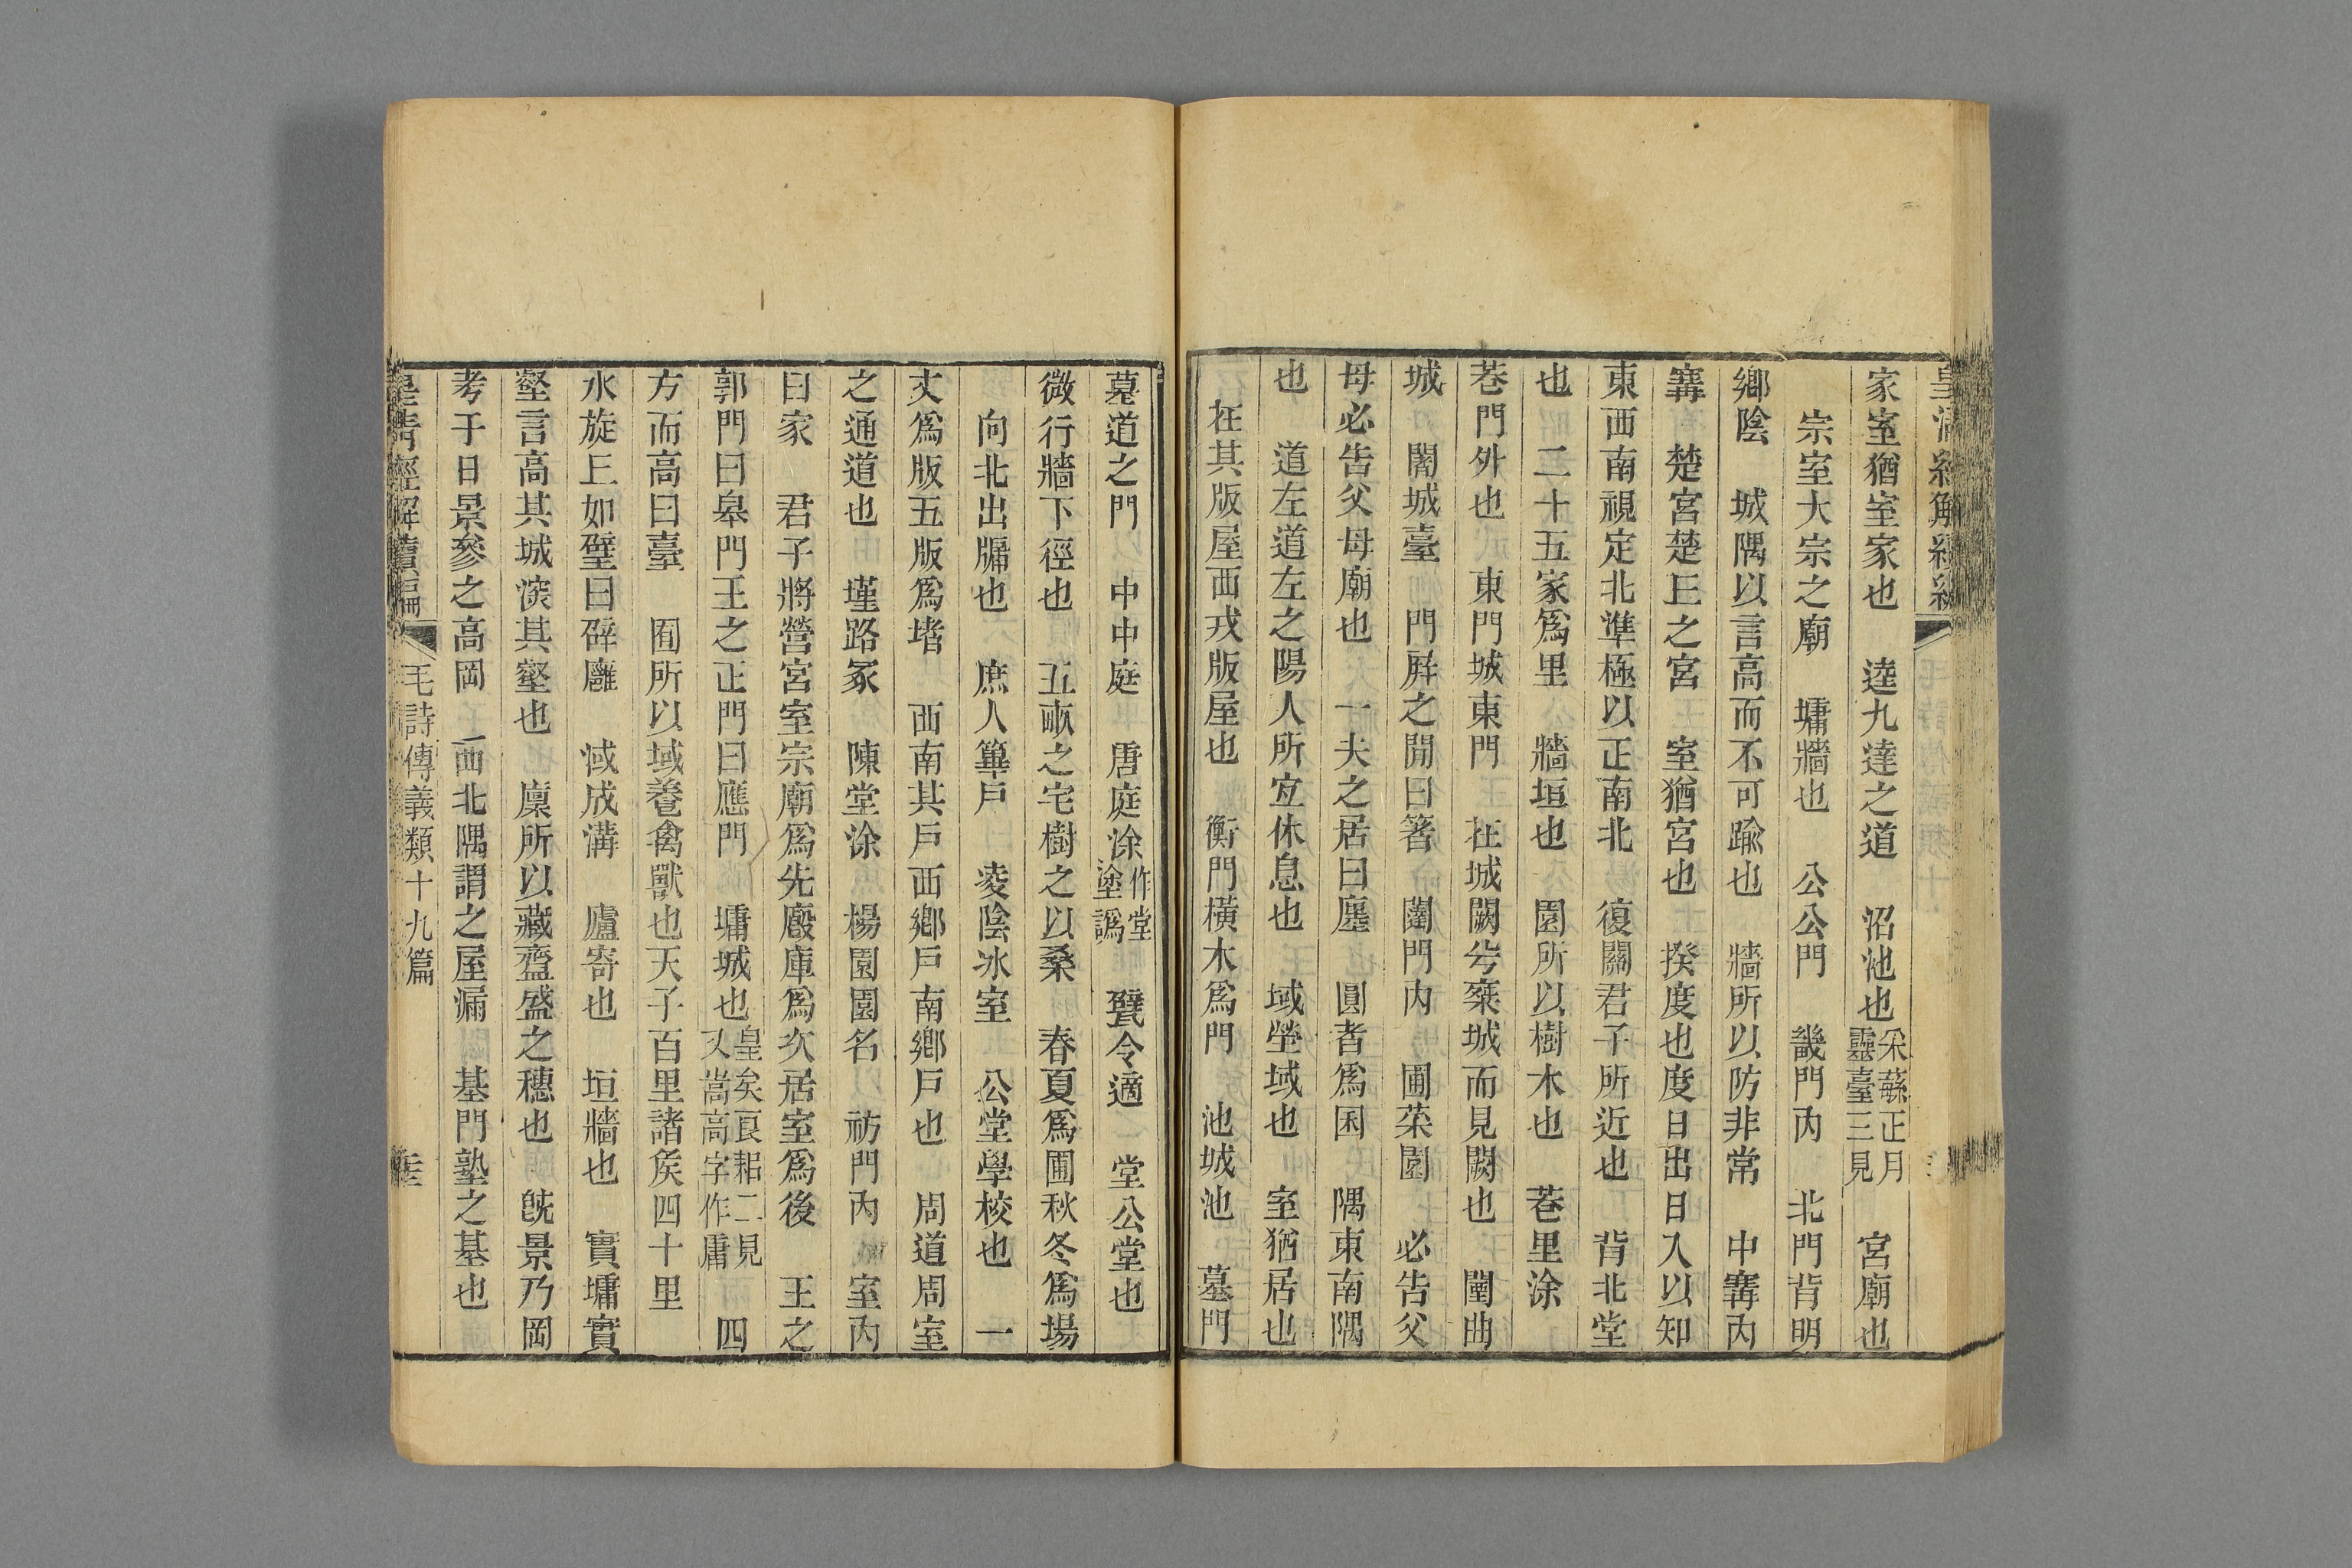 家室猶室家也　逵九達之道　沼池也采蘩正月靈臺三見　宮廟也
宗室大宗之廟　墉牆也　公公門　畿門內　北門背明
鄉陰　城隅以言高而不可踰也　牆所以防非常　中冓內
冓　楚宮楚丘之宮　室猶宮也　揆度也度日出日入以知
東西南視定北準極以正南北　復關君子所近也　背北堂
也　二十五家爲里　牆垣也　園所以樹木也　巷里涂
巷門外也　東門城東門　在城闕兮椉城而見闕也　闉曲
城　闍城臺　門屛之閒曰箸　闥門內　圃菜園　必告父
母必告父母廟也　一夫之居曰廛　圓者爲囷　隅東南隅
也　道左道左之陽人所宜休息也　域塋域也　室猶居也
在其版屋西戎版屋也　衡門橫木爲門　池城池　墓門
墓道之門　中中庭　唐庭涂作堂塗譌　甓令適　堂公堂也
微行牆下徑也　五畝之宅樹之以桑　春夏爲圃秋冬爲場
向北出牖也　庶人篳戶　凌陰冰室　公堂學校也　一
丈爲版五版爲堵　西南其戶西鄉戶南鄉戶也　周道周室
之通道也　墐路冢　陳堂涂　楊園園名　祊門內　室內
曰家　君子將營宮室宗廟爲先廄庫爲次居室爲後　王之
郭門曰皋門王之正門曰應門　墉城也皇矣良耜二見又嵩高字作庸　四
方而高曰臺　囿所以域養禽獸也天子百里諸矦四十里
水旋丘如璧曰辟廱　減成溝　廬寄也　垣牆也　實墉實
壑言高其城深其壑也　廩所以藏齍盛之穗也　旣景乃岡
考于日景參之高岡　西北隅謂之屋漏　基門塾之基也
皇清經解續編　毛詩傳義類十九篇